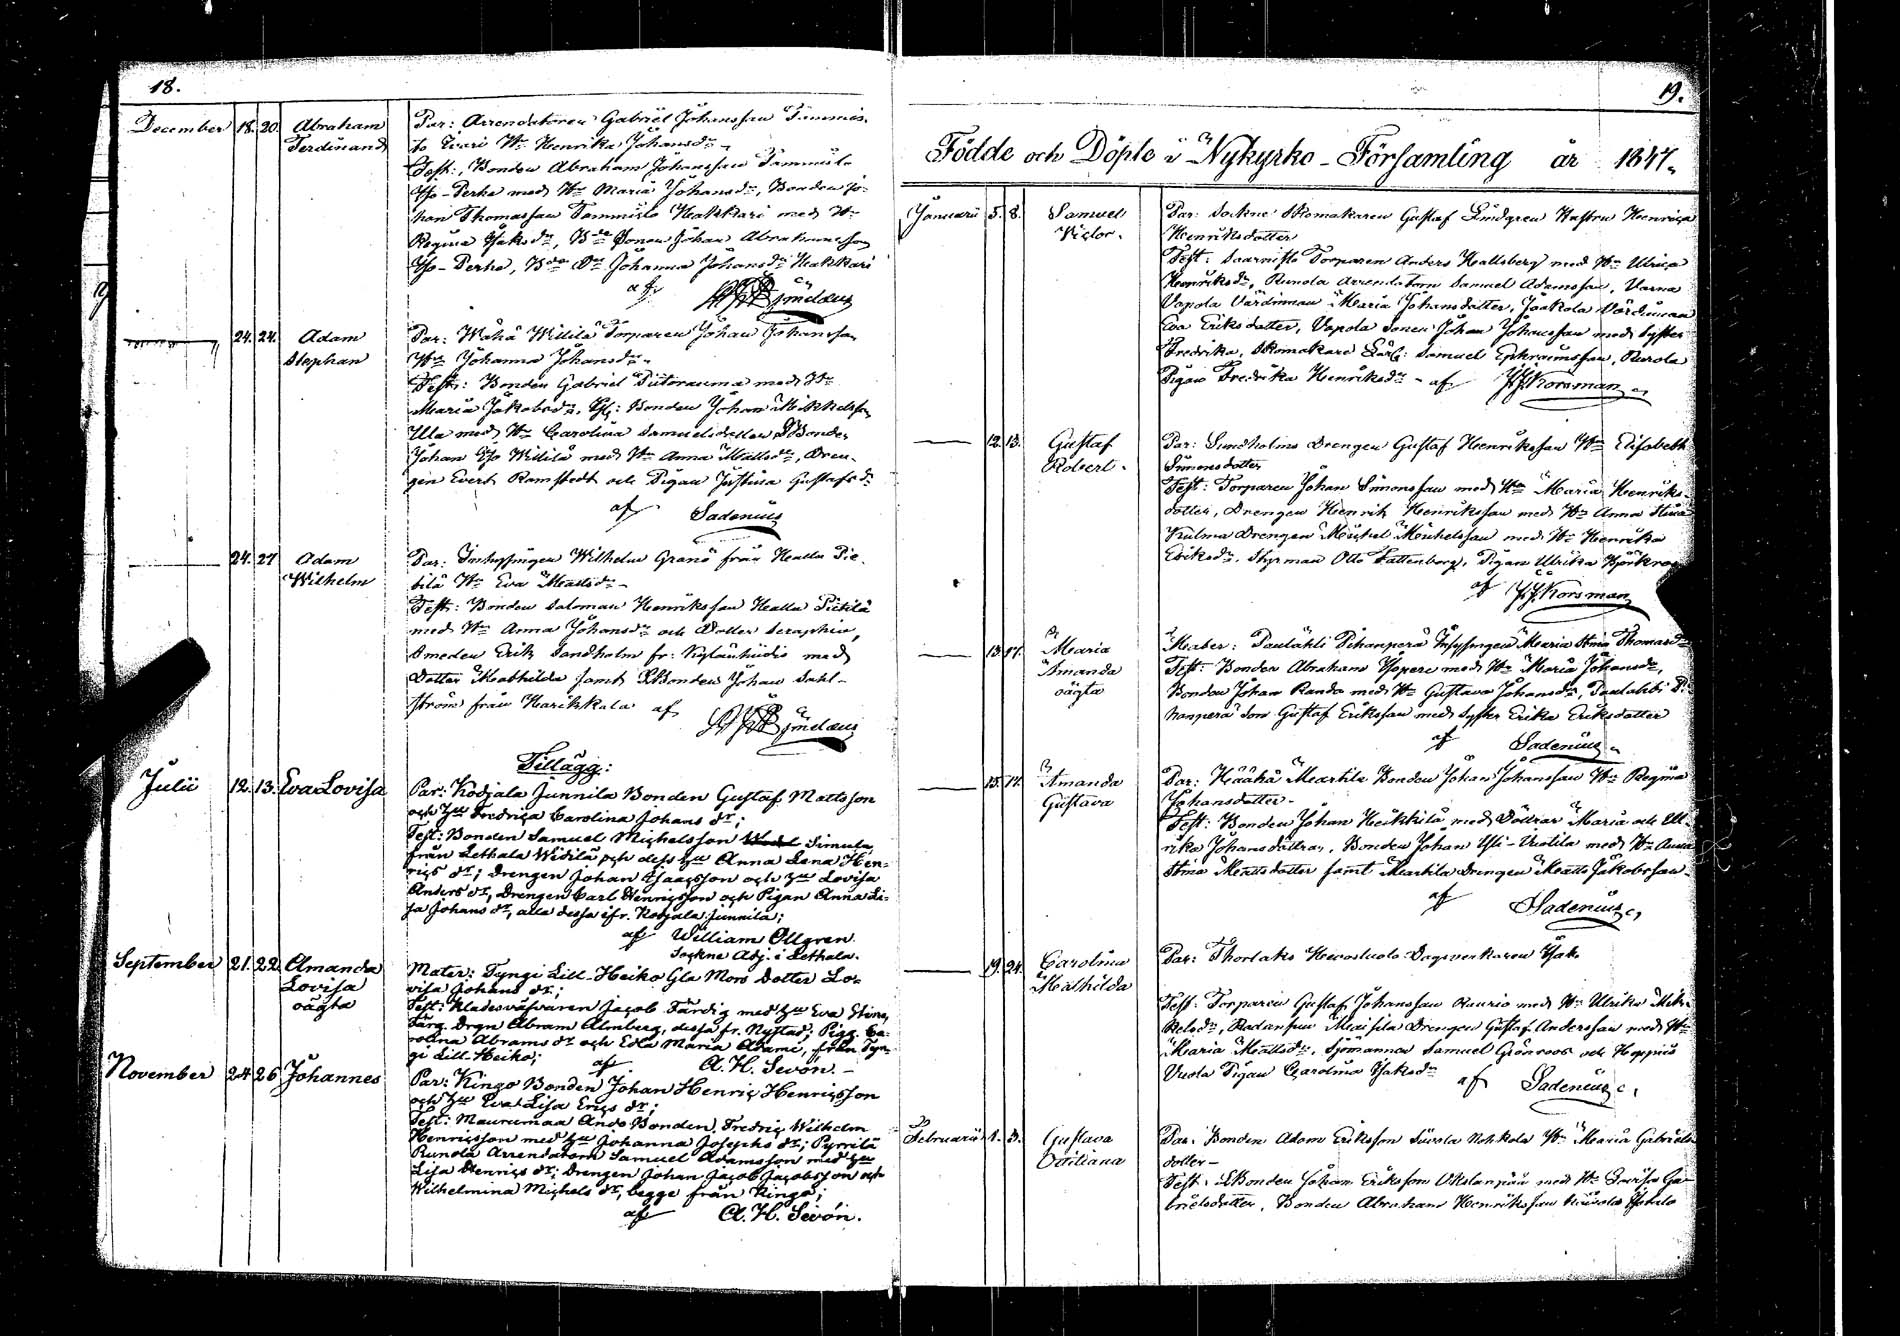 18.
December 18. 20. Abraham Ferdinand
Par: Arrendatoren Gabriel Johansson Tammis-
to Hu Henrika Johansdr
Test: Bonden Abraham Johansson Tammisto
Yso-Perho med Hu Maria Johansdr, Bonden Jo-
han Thomasson Tammisto Hakkari med Hu
Regina Isaksdr, Bde Sonen Johan Abrahamsson
Yso-Perho, Bde Dr Johanna Johansdr Hakkari
af
24. 24. Adam Stephan
Par: Wähä Willilä Torparen Johan Johansson
Hu Johanna Johansdr
Test: Bonden Gabriel Pietorauma med Hu
Maria Jakobsdr, Bonden Johan Mikkelsson
Ulla med Hu Carolina Samuelsdotter Bonden
Johan Yso Willilä med Hu Anna Mattsdr, Dren-
gen Evert Ramstedt och Pigan Justina Gustafsdr
af Sadenius
24. 27 Adam Wilhelm
Par: Inhysingen Wilhelm Granö från Healla Pie-
tilä Hu Eva Mattsdr
Test: Bonden Saloman Henriksson Healla Pietilä
med Hu Anna Johansdr och Dotter Seraphia,
Smeden Erik Sandholm fr: Kylänhiidis med
Dotter Mathilda samt Bonden Johan Dahl-
ström från Harikkala af
Tillägg:
Julii 12. 13. Eva Lovisa
Par: Kodjala Junnila Bonden Gustaf Mattsson
och hu Fredrica Carolina Johans dr;
Test: Bonden Samuel Michelsson Simula
från Lethala Widilä och dess hu Anna Lena Hen-
rics dr; Drengen Johan Isaacsson och hu Lovisa
Anders dr, Drengen Carl Henricsson och Pigan Anna Li-
sa Johans dr, alla dessa ifr. Kodjala Junnila;
af William Ollgren.
Sockne Adj. i Lethala.
September 21. 22. Amanda Lovisa oägta
Mater: Tyngi Lill. Heiko Gla Mors Dotter Lo-
visa Johans dr;
Test: Kladesväfvaren Jacob Färdig med hu Eva Stina,
Färg. Drgn Abram Almberg, dessa fr. Nystad; Pigg. Ca-
rolina Abrams dr och Eva Maria Adami, från Tyn-
gi Lill. Heiko;
af A. H. Sevón.
November 24 26 Johannes
Par: Kingo Bonden Johan Henric Henricsson
och hu Eva Lisa Erics dr;
Test: Maurumaa Ando Bonden Fredric Wilhelm
Henricsson med hu Johanna Josephs dr; Pyrrilä
Runola Arrendatorn Samuel Adamsson med hu
Lisa Henrics dr; Drengen Johan Jacob Jacobsson och
Wilhelmina Michels dr, begge från Kingo;
af A. H. Sevón.
19.
Födde och Döpte i Nykyrko-Församling år 1847.
Januarii 5. 8. Samuel Victor.
Par: Sockne Skomakaren Gustaf Lindgren Hustru Henrica
Henriksdotter
Test: Torparen Anders Hallsberg med Hu Ulrica
Henriksdr, Runola Arrendatorn Samuel Adamsson, Varna
Vapola Värdinnan Maria Johansdotter, Jaakola Värdinnan
Eva Eriksdotter, Vapola Sonen Johan Johansson med Syster
Fredrika, Skomakare Lärl: Samuel Ephraimsson, Runola
Pigan Fredrika Henriksdr af J.J. Korsman
12. 13. Gustaf Robert.
Par: Sundholms Drengen Gustaf Henriksson Hu Elisabeth
Simonsdotter
Test: Torparen Johan Simonsson med Hu Maria Henriks-
dotter, Drengen Henrik Henriksson med Hu Anna Stina
Kulma Drengen Michel Michelsson med Hu Henrika
Eriksdr. Styrman Otto Lattenberg, Pigan Ulrika
af J.J. Korsman
13. 17. Maria Amanda oägta
Mater: Paulahti Pihanperä Inhysingen Maria Stina Thomasdr
Test: Bonden Abraham Yspere med Hu Maria Johansdr,
Bonden Johan Randa med Hu Gustava Johansdr, Paulahti Pi-
hanperä Son Gustaf Eriksson med Syster Erika Eriksdotter
af Sadenius
15. 17. Amanda Gustava
Par: Häähä Marttila Bonden Johan Johansson Hu Regina
Johansdotter
Test: Bonden Johan Heikkilä med Döttrar Maria och Ul-
rika Johansdöttrar, Bonden Johan Yli-Uutila med Hu Anna
Stina Mattsdotter samt Marttila Drengen Matts Jakobsson
af Sadenius
19. 24. Carolina Mathilda
Par: Thorlaks Dagsverkaren Isak
Test: Torparen Gustaf Johansson med Hu Ulrika Mik-
kelsdr, Maisila Drengen Gustaf Andersson med Hu
Maria Mattsdr, Sjömannen Samuel Grönroos och
Pigan Carolina Isaksdr af Sadenius
Februarii 1. 3. Gustava
Par: Bonden Adam Eriksson Nohkola Hu Maria Gabriels-
dotter
Test: Bonden Johan Eriksson med Hu Lovisa Ga-
brielsdotter, Bonden Abraham Henriksson